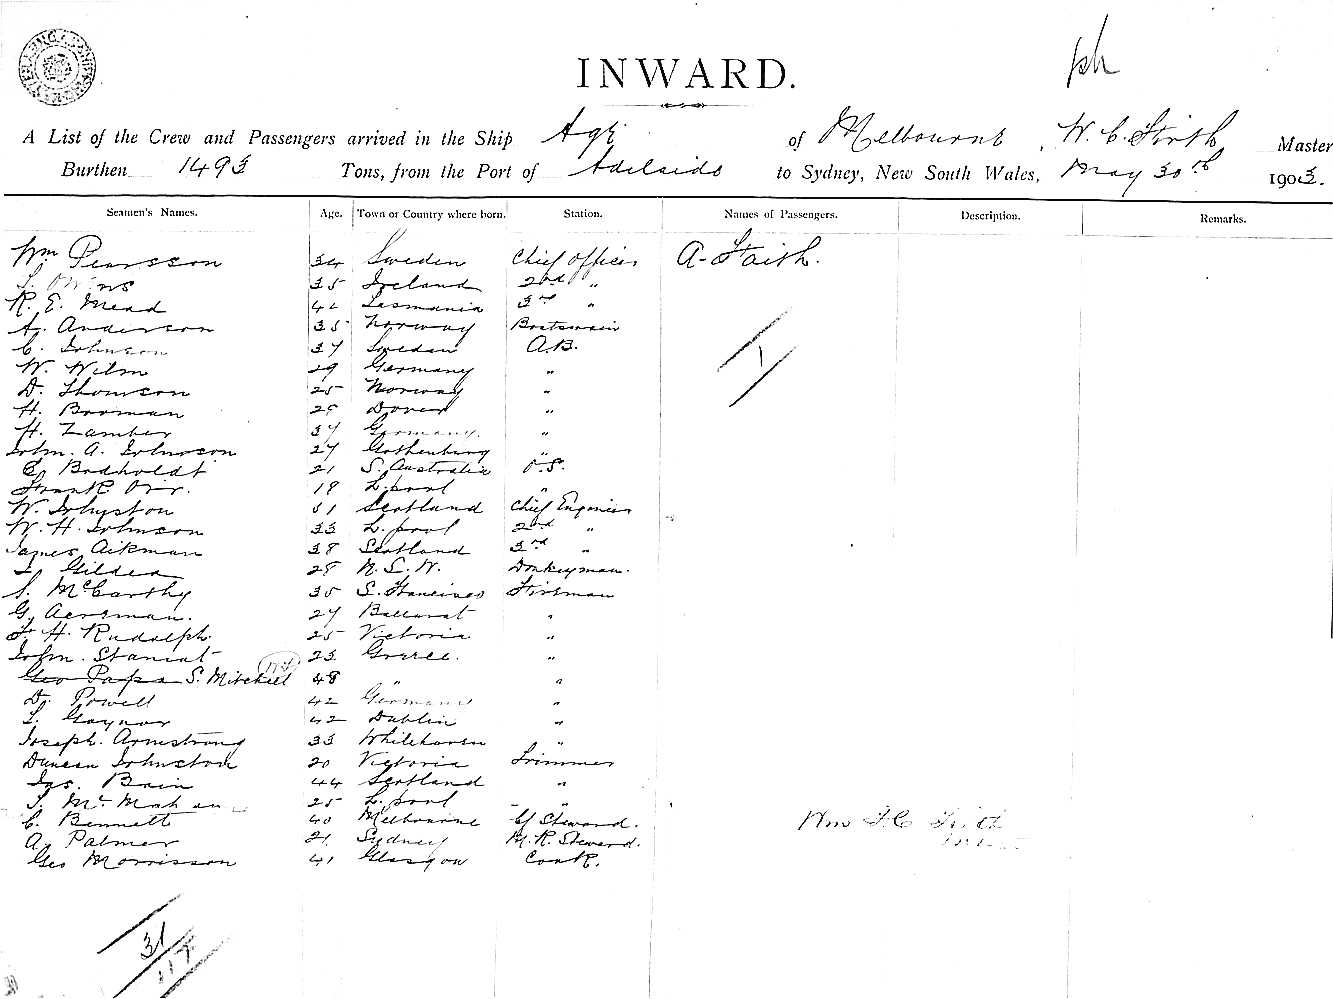 INWARD.
A List of the Crew and Passengers arrived in the Ship of Melbourne, W. C. Firth Master
Burthen 1493 Tons, from the Port of Adelaide to Sydney, New South Wales, May 30th 1903.
Seamen's Names. Age. Town or Country where born. Station. Names of Passengers. Description. Remarks.
Wm Pearsson 34 Sweden Chief Officer A. Faith.
35 Ireland 2nd "
R. E. Mead 42 Tasmania 3rd "
A. Anderson 35 Norway Boatswain
C. Johnson 37 Sweden A.B.
W. Wilm 29 Germany "
D. Thomson 25 Norway "
H. Booman 29 Dover "
H. Zamber 37 Germany "
John. A. Johnson 27 Gothenburg "
Bodholdt 21 S. Australia O.S.
Frank Orr. 19 L.pool "
W. Johnston 51 Scotland Chief Engineer
W. H. Johnson 33 L.pool 2nd "
James Aikman 38 Scotland 3rd "
Gilden 28 N.S.W. Donkeyman.
McCarthy 35 S. Francisco Fireman
G. Aerman. 27 Ballarat "
F. H. Rudolph 25 Victoria "
John. 23 Greece. "
Geo Papa S. Mitchell 48 " "
D. Powell 42 Germany "
Gaynor 42 Dublin "
Joseph. Armstrong 33 Whitehaven "
Duncan Johnston 20 Victoria Trimmer
Jas. Bain 44 Scotland "
McMahan 25 L.pool "
C. Bennett 40 Melbourne Cf Steward.
A. Palmer 21 Sydney M.R. Steward.
Geo Morrisson 41 Glasgow Cook.
1
31
117